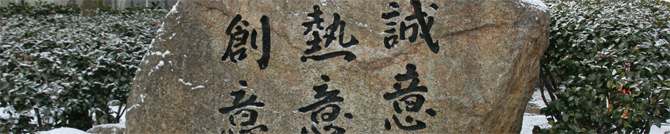 誠意
熱意
創意